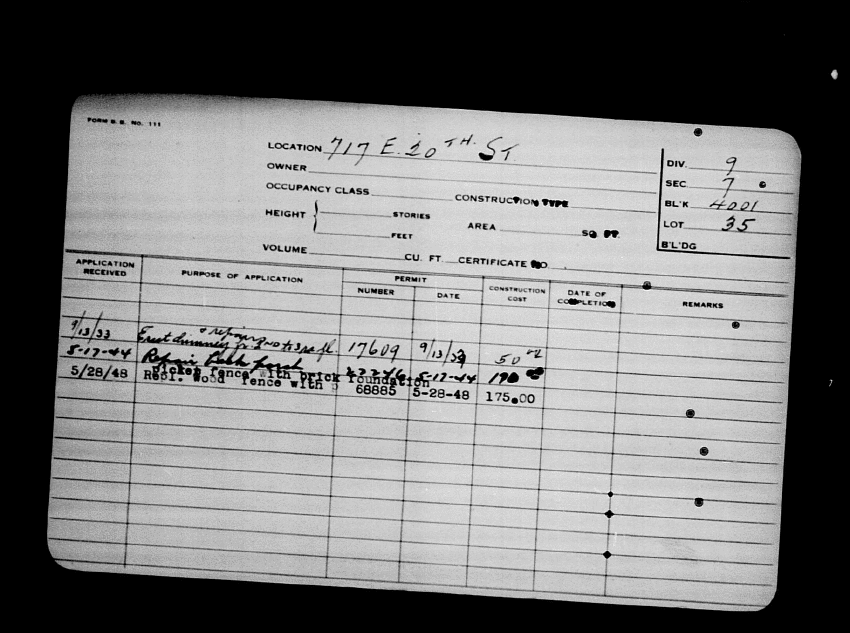 FORM B. B. NO. 111
LOCATION 717 E. 20TH. ST
OWNER
OCCUPANCY CLASS CONSTRUCTION TYPE
HEIGHT STORIES
FEET
AREA SQ FT.
VOLUME CU. FT. CERTIFICATE NO.
DIV. 9
SEC. 7
BL'K 4001
LOT 35
B'L'DG
APPLICATION RECEIVED PURPOSE OF APPLICATION PERMIT NUMBER DATE CONSTRUCTION COST DATE OF COMPLETION REMARKS
& repair
9/13/33 Erect chimney fl. 17609 9/13/33 50
5-17-44 Repair back porch 5-17-44
picket fence with brick foundation
5/28/48 Repl. Wood fence with 68885 5-28-48 175.00